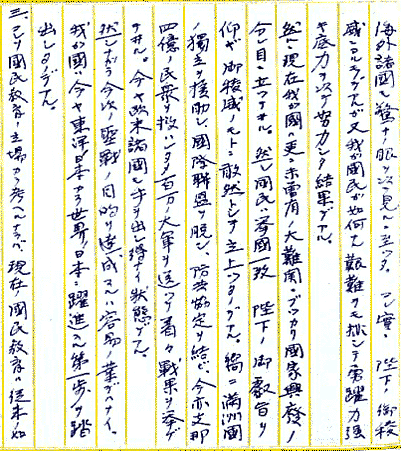 海外諸國ヲ驚ナ眼ヲ以テ見ルニ至ッタ。コレ實ニ 陛下ノ御稜
威ニヨルデアルガ又我ガ國民ガ如何ナ艱難ヲモ排シテ勇躍力強
ヤ底力ヲ以テ努力シタ結果デアル。
然ルニ現在我ガ國ハ更ニ未曾有ノ大難関ニブツカリ國家興廢ノ
今ハ目ニ立ツテヰル。然シ國民ハ擧國一致 陛下ノ御叡旨ヲ
仰ギ御稜威ノモトニ敢然トシテ立上ツタノデアル。縞ニ満洲國
ノ獨立ヲ援助シ國際聯盟ヲ脱シ、防共協定ヲ結ビ、今亦支那
四億ノ民衆ヲ救ハンタメ百万ノ大軍ヲ送ツテ着々戦果ヲ擧ゲ
テヰル。今ヤ欧米諸國モ手ヲ出シ得ナイ状態デアル。
然シナガラ今次ノ聖戦ノ目的ヲ達成スルハ容易ノ業デハナイ。
我ガ國ハ今ヤ東洋ノ日本カラ世界ノ日本ニ躍進スル第一歩ヲ踏
出シタノデアル。
三、己ヲ國民教育ノ立場カラ考ヘルナラバ、現在ノ國民教育ハ從来ノ如